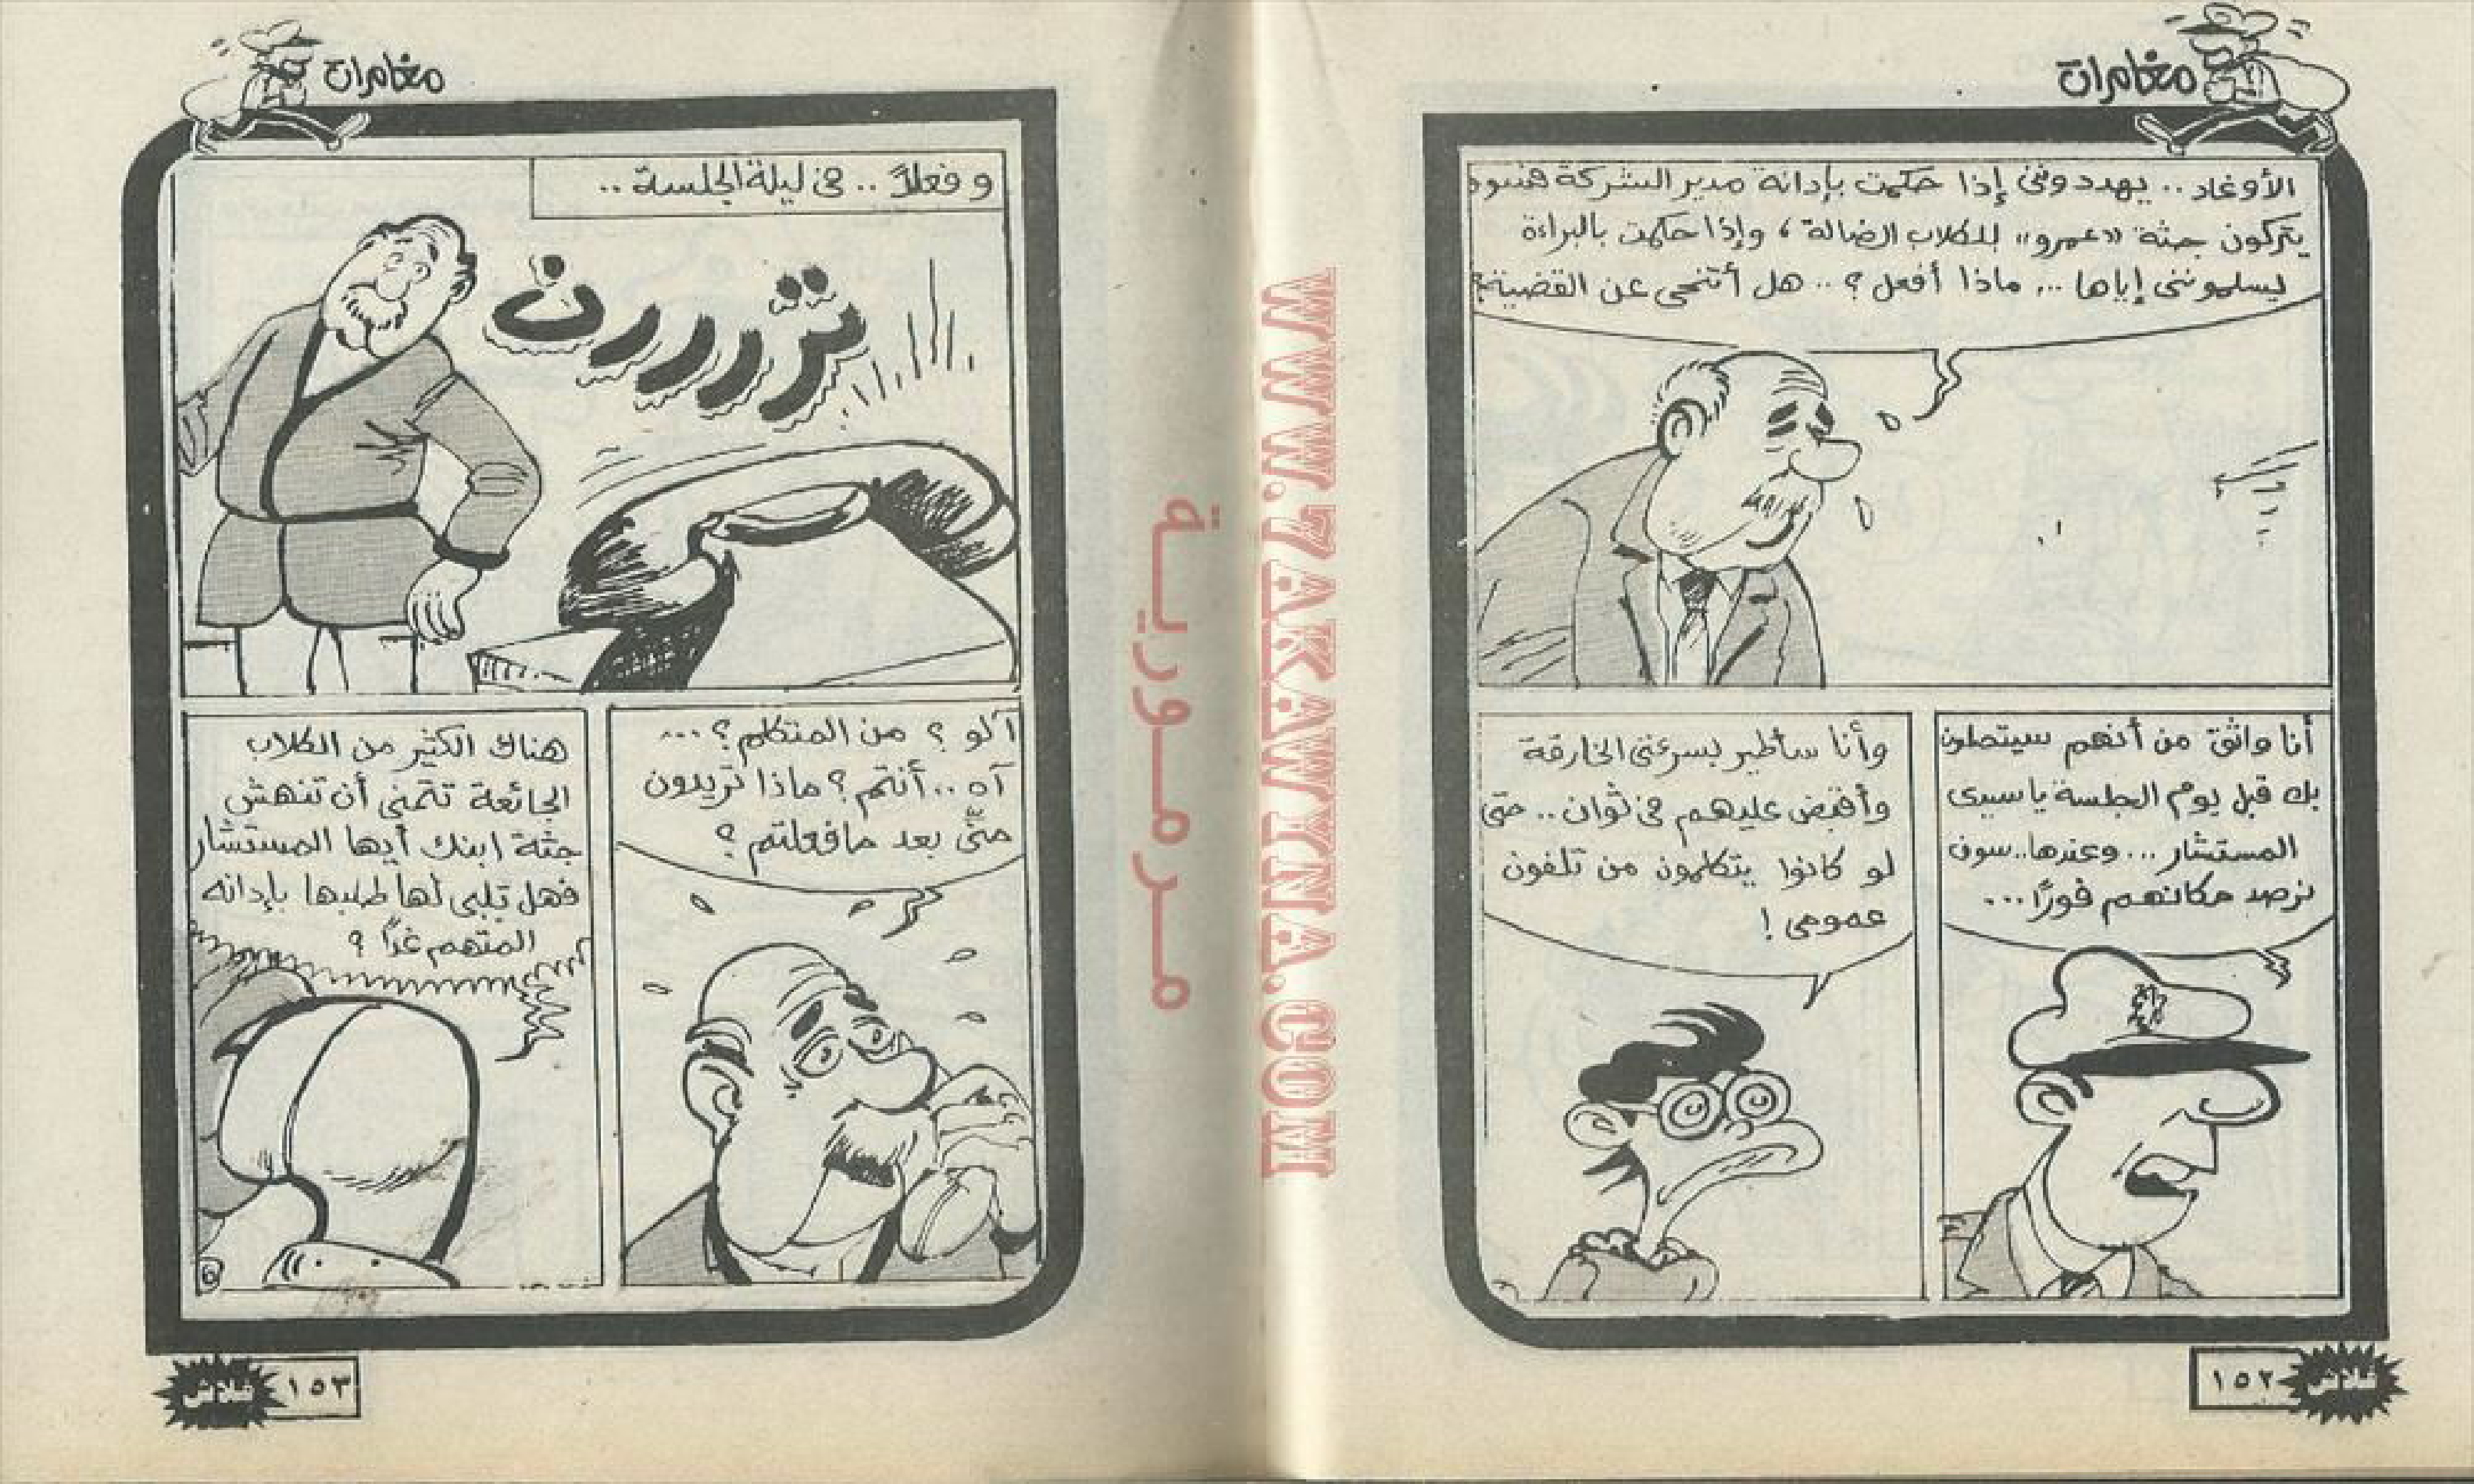 مغامرات
الأوغاد .. يهددوننى إذا حكمت بإدانة مدير الشركة فسوف
يتركون جثة «عمرو» للكلاب الضالة ، وإذا حكمت بالبراءة
يسلموننى إياها ... ماذا أفعل ؟ .. هل أتنحى عن القضية ؟
أنا واثق من أنهم سيتصلون
بك قبل يوم الجلسة يا سيدى
المستشار ... وعندها .. سوف
نرصد مكانهم فورًا ...
وأنا سأطير بسرعتى الخارقة
وأقبض عليهم فى ثوان .. حتى
لو كانوا يتكلمون من تلفون
عمومى !
١٥٢
فلاش
مغامرات
وفعلاً .. فى ليلة الجلسة ..
تررررن
آلو ؟ من المتكلم ؟ ...
آه .. أنتم ؟ ماذا تريدون
منى بعد ما فعلتم ؟
هناك الكثير من الكلاب
الجائعة تتمنى أن تنهش
جثة ابنك أيها المستشار
فهل تلبى لها طلبها بإدانة
المتهم غدًا ؟
١٥٣
فلاش
WWW.7AKAWINA.COM
مرمورية